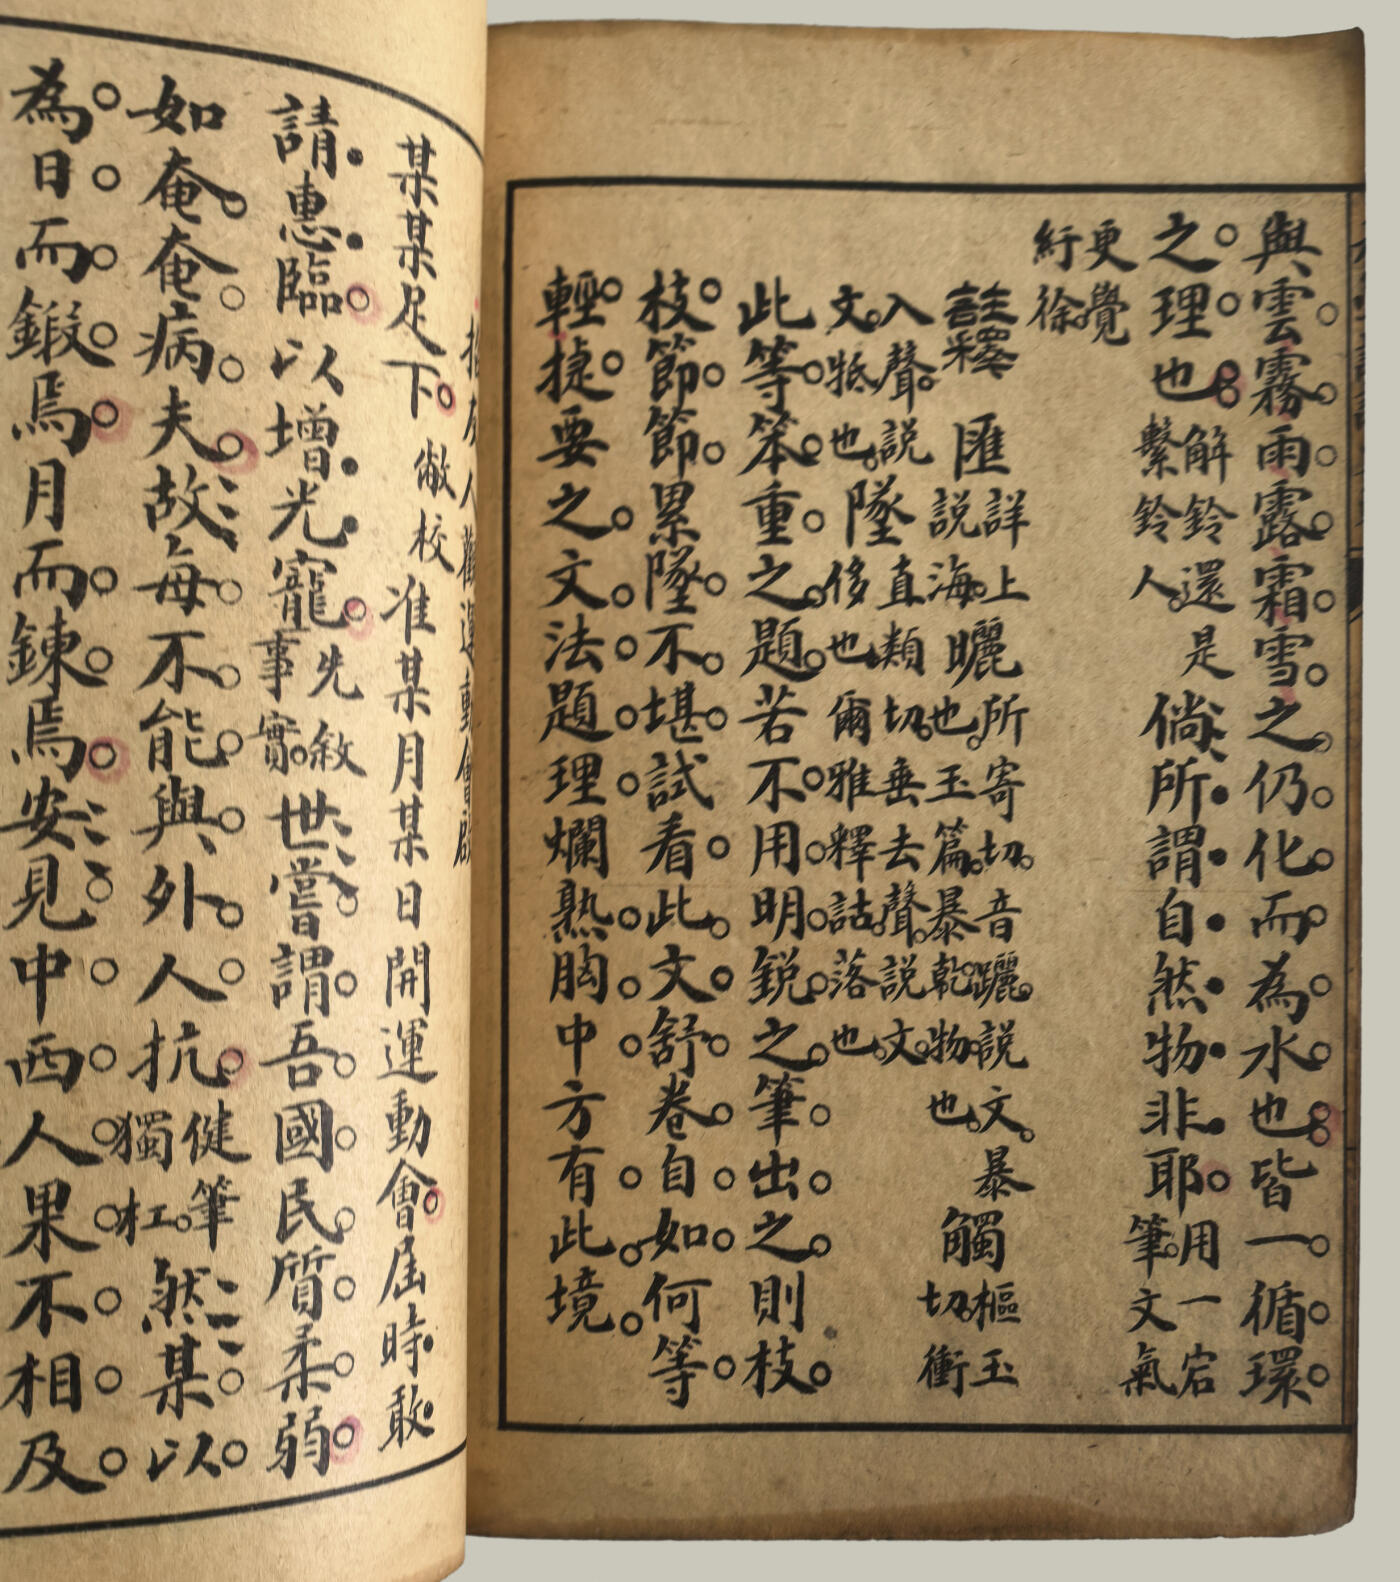 與雲霧雨露霜雪之仍化而為水也皆一循環
之理也解鈴還是繫鈴人倘所謂自然物非耶用一宕筆文氣
更覺紆徐
註釋 匯詳上說海曬所寄切音躧說文暴也玉篇暴乾物也觸樞玉切衝
入聲說文牴也墜直類切垂去聲說文侈也爾雅釋詁落也
此等笨重之題若不用明銳之筆出之則枝
枝節節累墜不堪試看此文舒卷自如何等
輕捷要之文法題理爛熟胸中方有此境
某某足下敝校准某月某日開運動會屆時敢
請惠臨以增光寵先敘事實世嘗謂吾國民質柔弱
如奄奄病夫故每不能與外人抗健筆獨扛然某以
為日而鍛焉月而鍊焉安見中西人果不相及